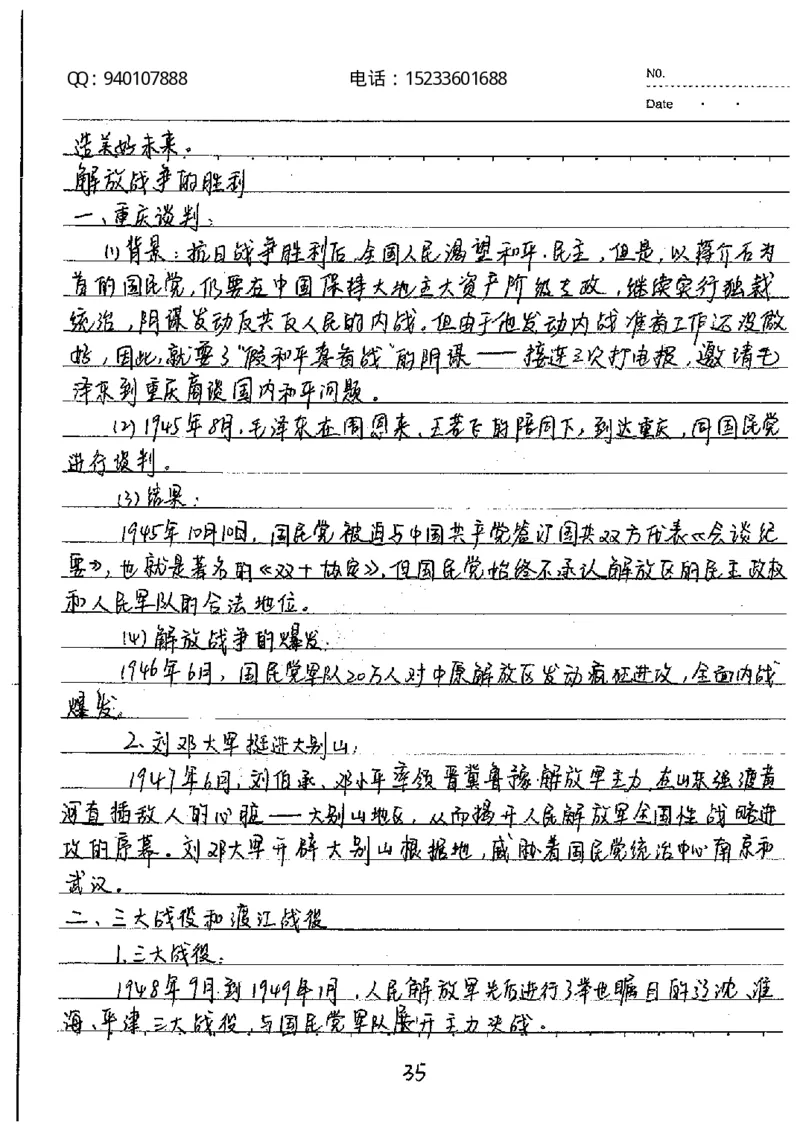 QQ：940107888 电话：15233601688 NO.
Date
造美好未来。
解放战争的胜利
一、重庆谈判：
(1)背景：抗日战争胜利后,全国人民渴望和平、民主，但是，以蒋介石为
首的国民党，仍要在中国保持大地主大资产阶级专政，继续实行独裁
统治，阴谋发动反共反人民的内战。但由于他发动内战准备工作还没做
好，因此，就耍了“假和平真备战”的阴谋——接连三次打电报，邀请毛
泽东到重庆商谈国内和平问题。
(2)1945年8月，毛泽东在周恩来、王若飞的陪同下，到达重庆，同国民党
进行谈判。
(3)结果：
1945年10月10日，国民党被迫与中国共产党签订国共双方代表《会谈纪
要》，也就是著名的《双十协定》，但国民党始终不承认解放区的民主政权
和人民军队的合法地位。
(4)解放战争的爆发.
1946年6月，国民党军队20万人对中原解放区发动疯狂进攻，全面内战
爆发。
2、刘邓大军挺进大别山：
1947年6月，刘伯承、邓小平率领晋冀鲁豫解放军主力，在山东强渡黄
河直插敌人的心脏——大别山地区，从而揭开人民解放军全国性战略进
攻的序幕。刘邓大军开辟大别山根据地，威胁着国民党统治中心南京和
武汉。
二、三大战役和渡江战役
1.三大战役：
1948年9月到1949年1月，人民解放军先后进行了举世瞩目的辽沈、淮
海、平津三大战役，与国民党军队展开主力决战。
35